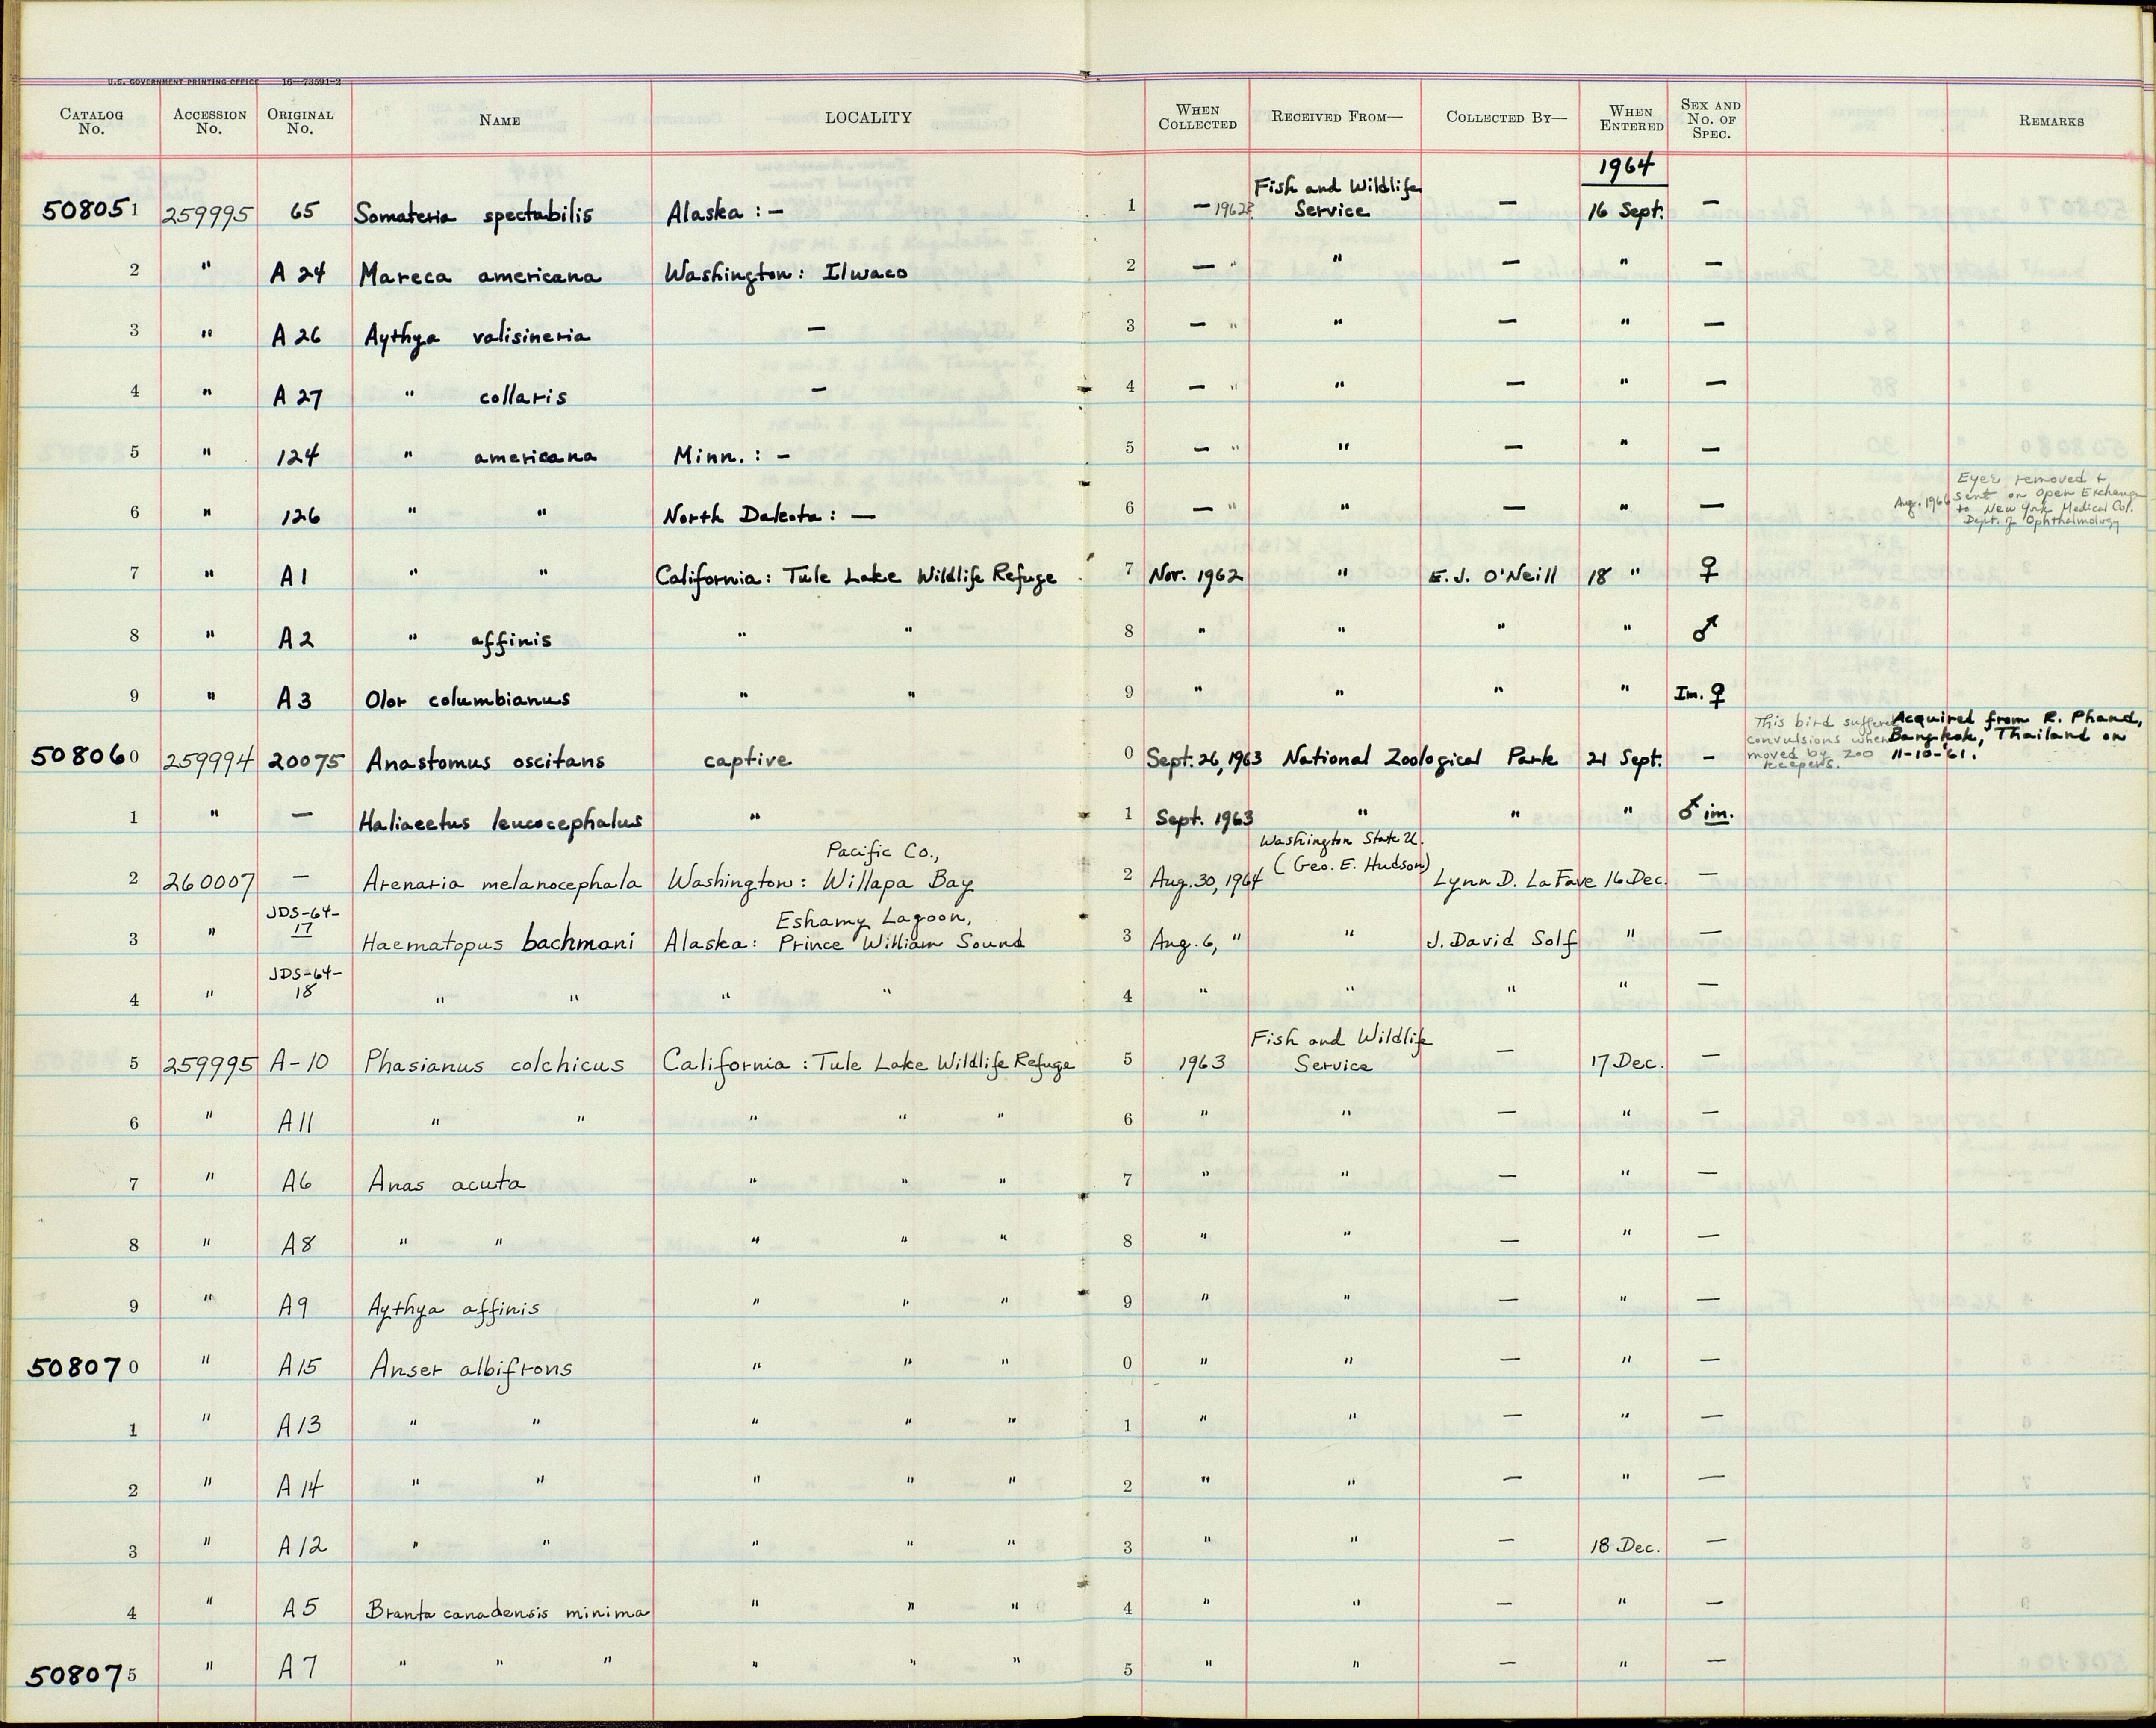 U.S. GOVERNMENT PRINTING OFFICE 16—73591-2
CATALOG No. ACCESSION No. ORIGINAL No. NAME LOCALITY WHEN COLLECTED RECEIVED FROM— COLLECTED BY— WHEN ENTERED SEX AND No. OF SPEC. REMARKS
1964
508051 259995 65 Somateria spectabilis Alaska : — 1 — 1962? Fish and Wildlife Service — 16 Sept. —
2 " A 24 Mareca americana Washington : Ilwaco 2 — " " — " —
3 " A 26 Aythya valisineria — 3 — " " — " —
4 " A 27 " collaris — 4 — " " — " —
5 " 124 " americana Minn. : — 5 — " " — " —
6 " 126 " " North Dakota : — 6 — " " — " — Aug. 1966 Eyes removed & sent on Open Exchange to New York Medical Col. Dept. of Ophthalmology
7 " A1 " " California : Tule Lake Wildlife Refuge 7 Nov. 1962 " E. J. O'Neill 18 " ♀
8 " A2 " affinis " " 8 " " " " ♂
9 " A3 Olor columbianus " " 9 " " " " Im. ♀
508060 259994 20075 Anastomus oscitans captive 0 Sept. 26, 1963 National Zoological Park 21 Sept. — This bird suffered convulsions when moved by zoo keepers. Acquired from R. Phand, Bangkok, Thailand on 11-10-'61.
1 " — Haliaeetus leucocephalus " 1 Sept. 1963 " " " ♂ im.
2 260007 — Arenaria melanocephala Washington : Pacific Co., Willapa Bay 2 Aug. 30, 1964 Washington State U. (Geo. E. Hudson) Lynn D. LaFave 16 Dec. —
3 " JDS-64-17 Haematopus bachmani Alaska : Eshamy Lagoon, Prince William Sound 3 Aug. 6, " " J. David Solf " —
4 " JDS-64-18 " " " " 4 " " " " —
5 259995 A-10 Phasianus colchicus California : Tule Lake Wildlife Refuge 5 1963 Fish and Wildlife Service — 17 Dec. —
6 " A11 " " " " " 6 " " — " —
7 " A6 Anas acuta " " " 7 " " — " —
8 " A8 " " " " " 8 " " — " —
9 " A9 Aythya affinis " " " 9 " " — " —
508070 " A15 Anser albifrons " " " 0 " " — " —
1 " A13 " " " " " 1 " " — " —
2 " A14 " " " " " 2 " " — " —
3 " A12 " " " " " 3 " " — 18 Dec. —
4 " A5 Branta canadensis minima " " " 4 " " — " —
508075 " A7 " " " " " " 5 " " — " —